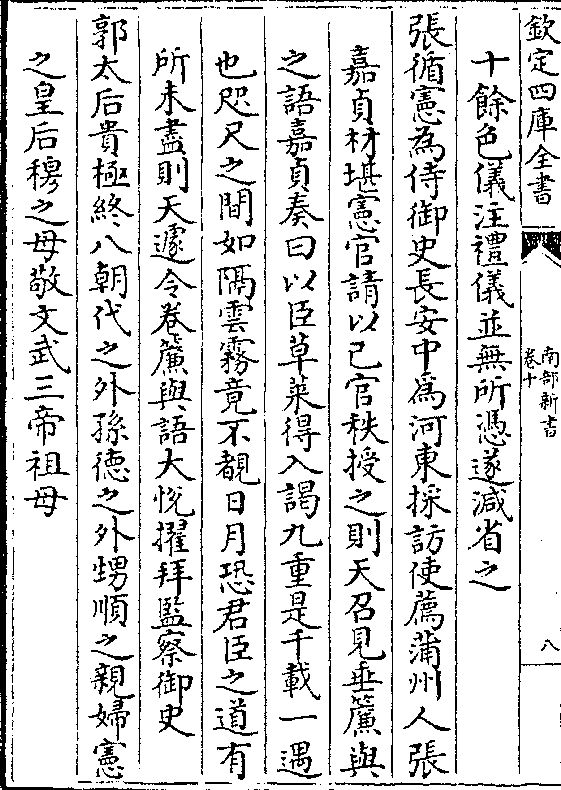 欽定四庫全書
南部新書
卷十
八
十餘色儀注禮儀並無所憑遂減省之
張循憲為侍御史長安中為河東採訪使薦蒲州人張
嘉貞材堪憲官請以己官秩授之則天召見垂簾與
之語嘉貞奏曰以臣草萊得入謁九重是千載一遇
也咫尺之間如隔雲霧竟不覩日月恐君臣之道有
所未盡則天遽令卷簾與語大悅擢拜監察御史
郭太后貴極終八朝代之外孫德之外甥順之親婦憲
之皇后穆之母敬文武三帝祖母